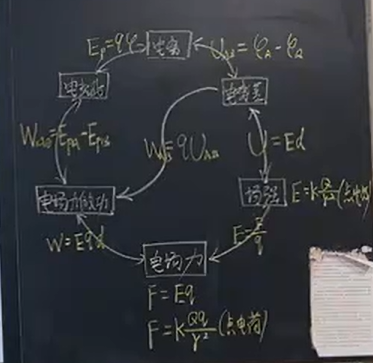 Ep=qφ
电势
U_AB=φ_A-φ_B
电势能
电势差
W_AB=E_pA-E_pB
W_AB=qU_AB
U=Ed
电场力做功
场强
E=K Q/r² (点电荷)
W=Eqd
E=F/q
电场力
F=Eq
F=K Qq/r² (点电荷)